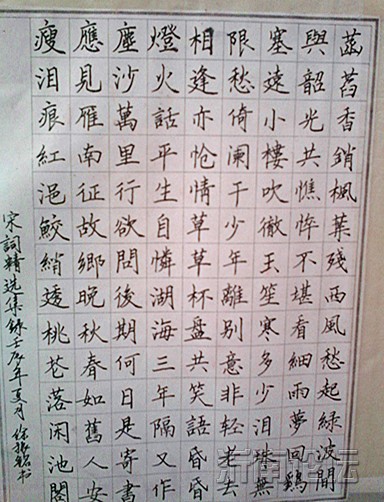 菡萏香銷楓葉殘西風愁起綠波間
與韶光共憔悴不堪看細雨夢回鷄
塞遠小樓吹徹玉笙寒多少泪珠無
限愁倚阑干少年離别意非轻老去
相逢亦怆情草草杯盘共笑語昏昏
燈火話平生自憐湖海三年隔又作
塵沙萬里行欲問後期何日是寄書
應見雁南征故鄉晚秋春如舊人安
瘦泪痕紅浥鮫綃透桃花落闲池閣
宋詞精选集錄壬辰年夏月徐振书
沂南论坛